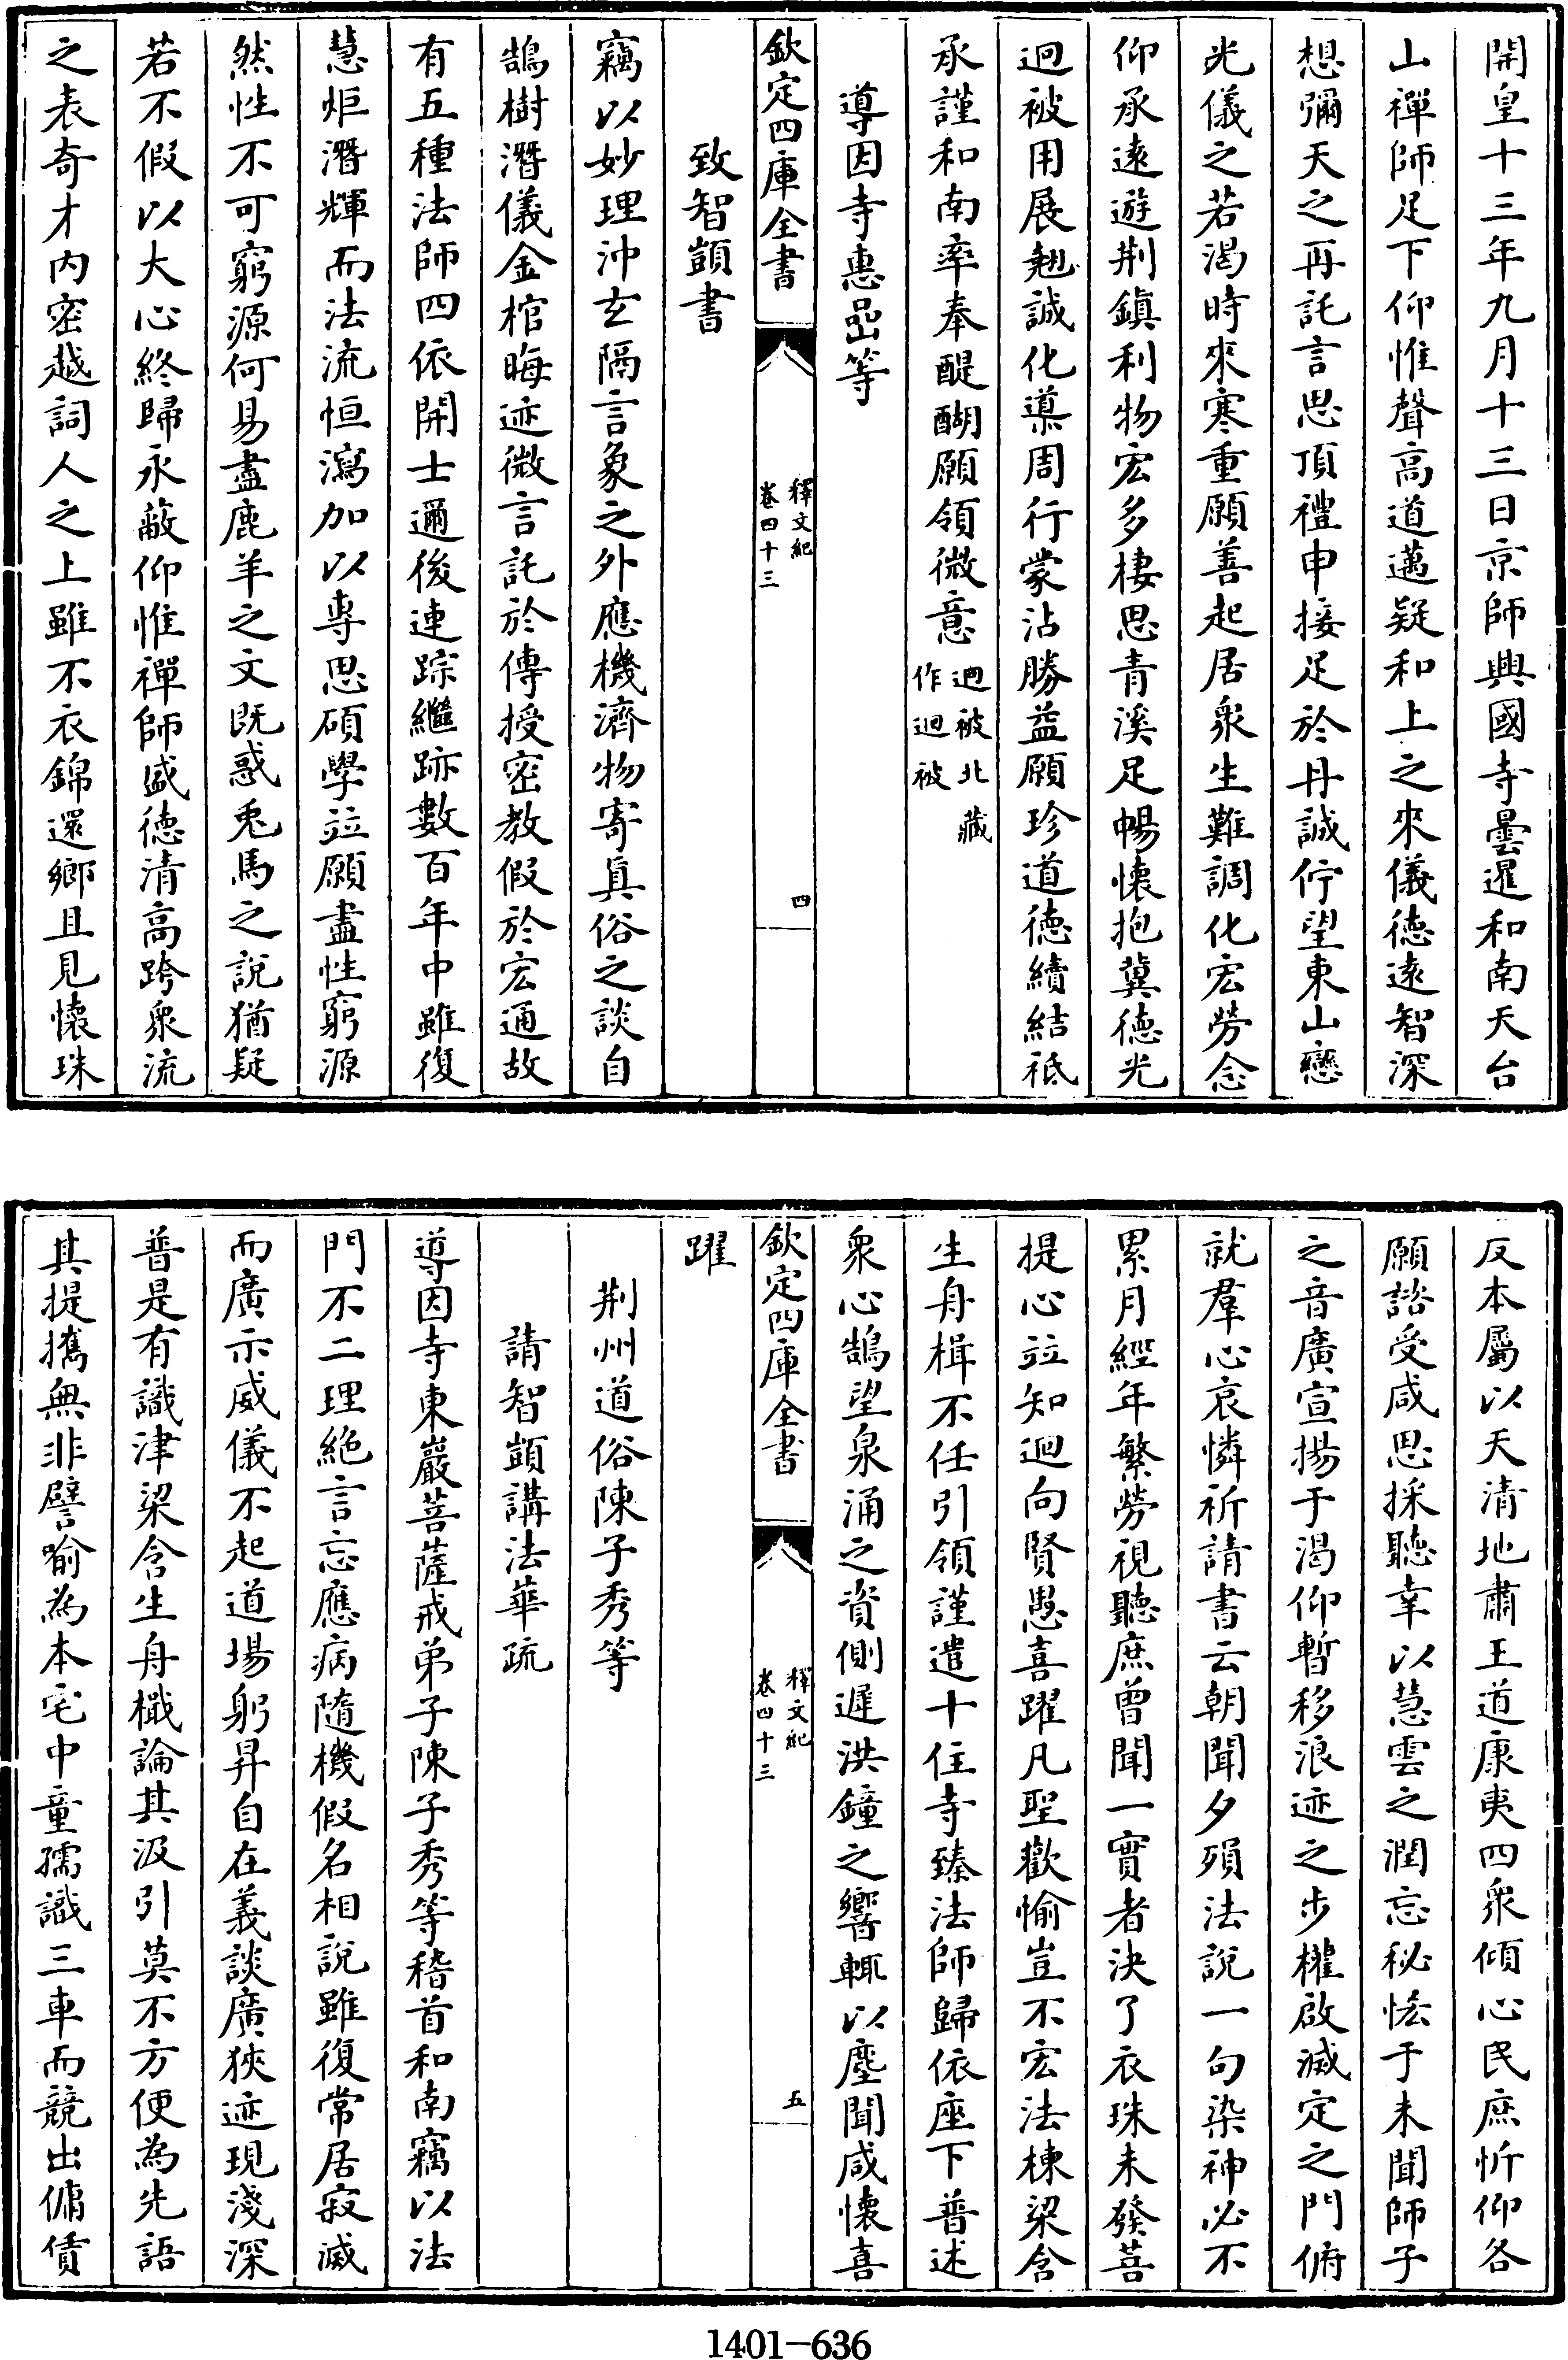 開皇十三年九月十三日京師興國寺曇暹和南天台
山禪師足下仰惟聲高道邁疑和上之來儀德遠智深
想彌天之再託言思頂禮申接足於丹誠佇望東山戀
光儀之若渴時來寒重願善起居衆生難調化宏勞念
仰承遠遊荆鎮利物宏多棲思青溪足暢懷抱冀德光
迴被用展翹誠化導周行蒙沾勝益願珍道德續結祇
承謹和南率奉醍醐願領微意迴被北藏作迴被
導因寺惠嵒等
欽定四庫全書
釋文紀
卷四十三
四
致智顗書
竊以妙理沖玄隔言象之外應機濟物寄眞俗之談自
鵠樹潛儀金棺晦迹微言託於傳授密教假於宏通故
有五種法師四依開士邇後連踪繼跡數百年中雖復
慧炬潛輝而法流恒瀉加以專思碩學竝願盡性窮源
然性不可窮源何易盡鹿羊之文既惑兎馬之說猶疑
若不假以大心終歸永蔽仰惟禪師盛德清高跨衆流
之表奇才内密越詞人之上雖不衣錦還鄉且見懷珠
反本屬以天清地肅王道康夷四衆傾心民庶忻仰各
願諮受咸思採聽幸以慧雲之潤忘秘恡于未聞師子
之音廣宣揚于渴仰暫移浪迹之步權啟滅定之門俯
就羣心哀憐祈請書云朝聞夕殞法說一句染神必不
累月經年繁勞視聽庶曾聞一實者決了衣珠未發菩
提心竝知迴向賢愚喜躍凡聖歡愉豈不宏法棟梁含
生舟楫不任引領謹遣十住寺臻法師歸依座下普述
衆心鵠望泉涌之資側遲洪鐘之響輒以塵聞咸懷喜
欽定四庫全書
釋文紀
卷四十三
五
躍
荆州道俗陳子秀等
請智顗講法華疏
導因寺東巖菩薩戒弟子陳子秀等稽首和南竊以法
門不二理絶言忘應病隨機假名相說雖復常居寂滅
而廣示威儀不起道場躬昇自在義談廣狹迹現淺深
普是有識津梁含生舟檝論其汲引莫不方便為先語
其提攜無非譬喻為本宅中童孺識三車而競出傭賃
1401-636